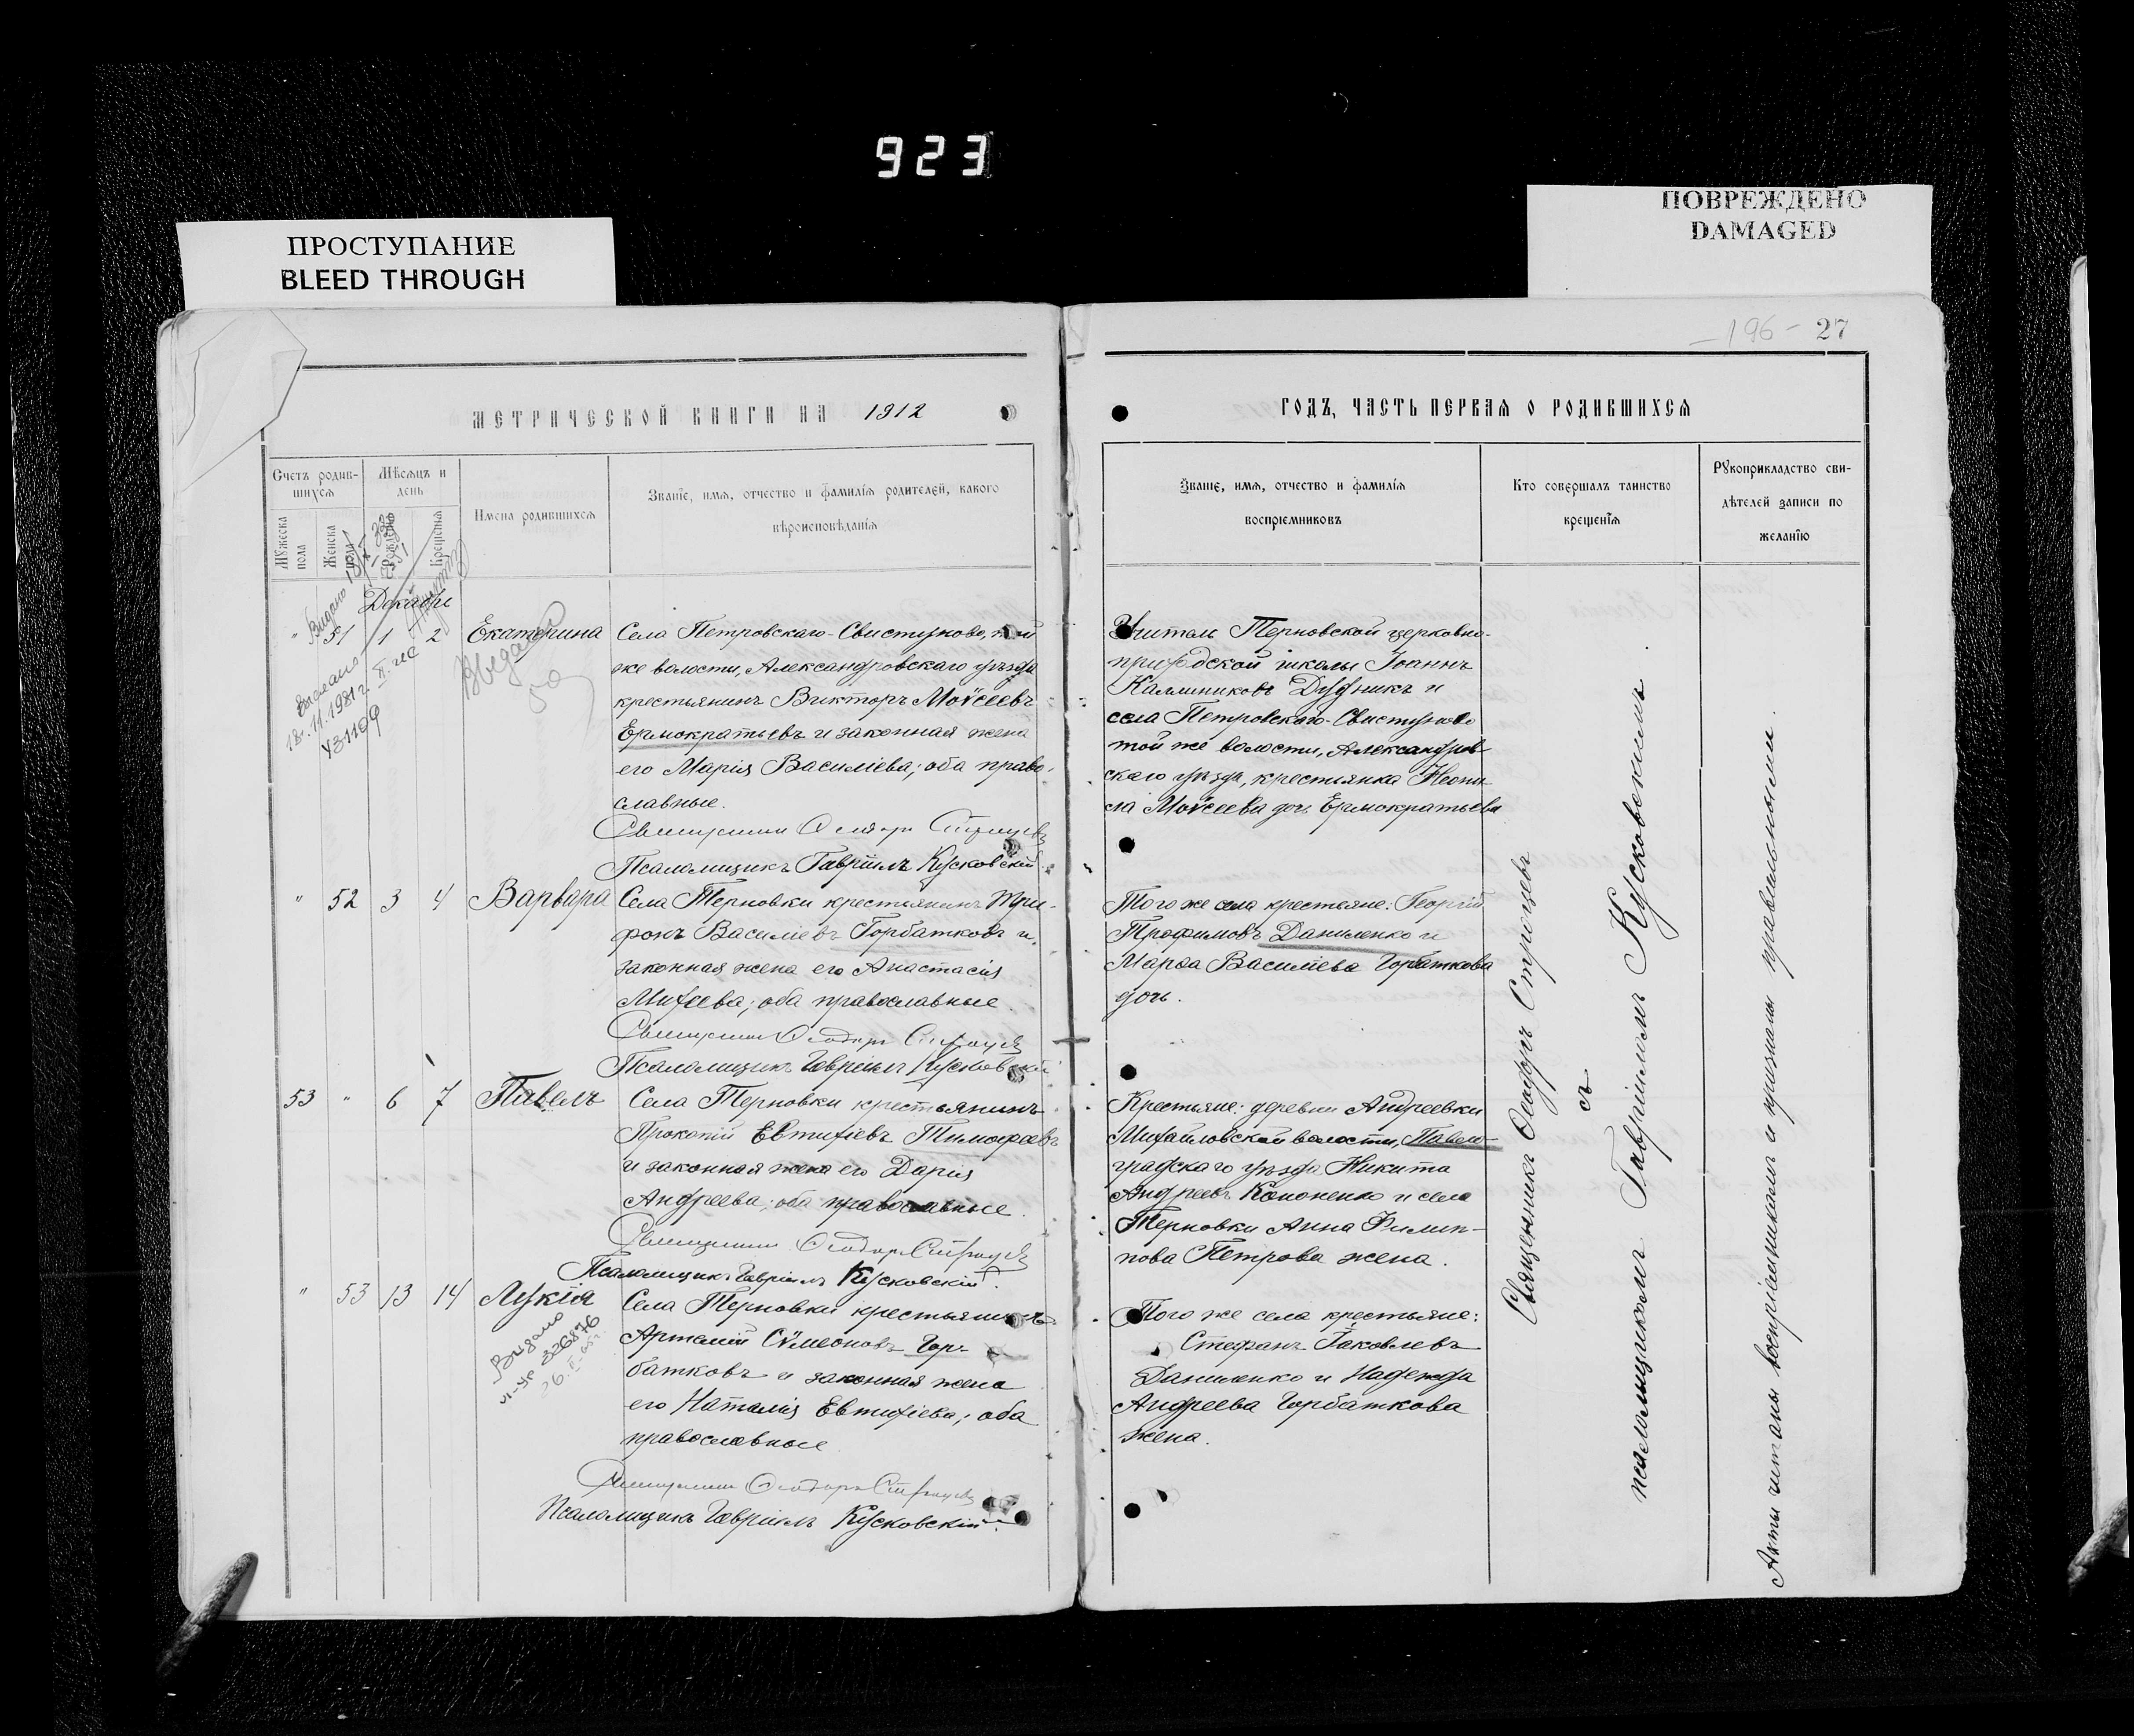 923
ПРОСТУПАНИЕ
BLEED THROUGH
ПОВРЕЖДЕНО
DAMAGED
196 - 27
МЕТРИЧЕСКОЙ КНИГИ НА 1912
ГОДЪ, ЧАСТЬ ПЕРВАЯ О РОДИВШИХСЯ
Счетъ родив-
шихся
Мѣсяцъ и
день
Мужеска
пола
Женска
пола
Рожденія
Крещенія
Имена родившихся
Званіе, имя, отчество и фамилія родителей, какого
вѣроисповѣданія
Званіе, имя, отчество и фамилія
воспріемниковъ
Кто совершалъ таинство
крещенія
Рукоприкладство сви-
дѣтелей записи по
желанію
Декабрь
" 51 1 2 Екатерина
Видано
18.11.1981 г.
УЗ1109
Села Петровскаго-Свистуново, той
же волости, Александровскаго уѣзда
крестьянинъ Викторъ Моѵсеевъ
Ермократьевъ и законная жена
его Марія Василіева; оба право-
славные.
Священникъ Ѳеодоръ Строцевъ
Псаломщикъ Гавріилъ Кусковскій
Учитель Терновской церковно-
приходской школы Іоаннъ
Калиниковъ Дудникъ и
села Петровскаго-Свистуново
той же волости, Александров-
скаго уѣзда, крестьянка Неони-
ла Моѵсеева дочь Ермократьева
" 52 3 4 Варвара
Села Терновки крестьянинъ Три-
фонъ Василіевъ Горбатковъ и
законная жена его Анастасія
Михеева; оба православные.
Священникъ Ѳеодоръ Строцевъ
Псаломщикъ Гавріилъ Кусковскій
Того же села крестьяне: Георгій
Трофимовъ Даниленко и
Марѳа Василіева Горбаткова
дочь.
53 " 6 7 Павелъ
Села Терновки крестьянинъ
Прокопій Евтихіевъ Тимофеевъ
и законная жена его Дарія
Андреева; оба православные.
Священникъ Ѳеодоръ Строцевъ
Псаломщикъ Гавріилъ Кусковскій.
Крестьяне: деревни Андреевки
Михайловской волости, Павло-
градскаго уѣзда Никита
Андреевъ Кононенко и села
Терновки Анна Филип-
пова Петрова жена.
" 53 13 14 Лукія
Видано
326876
Села Терновки крестьянинъ
Артемій Сѵмеоновъ Гор-
батковъ и законная жена
его Наталія Евтихіева; оба
православные
Священникъ Ѳеодоръ Строцевъ
Псаломщикъ Гавріилъ Кусковскій.
Того же села крестьяне:
Стефанъ Іаковлевъ
Даниленко и Надежда
Андреева Горбаткова
жена.
Священникъ Ѳеодоръ Строцевъ
съ
псаломщикомъ Гавріиломъ Кусковскимъ
Акты читаны воспріемникамъ и признаны правильными.